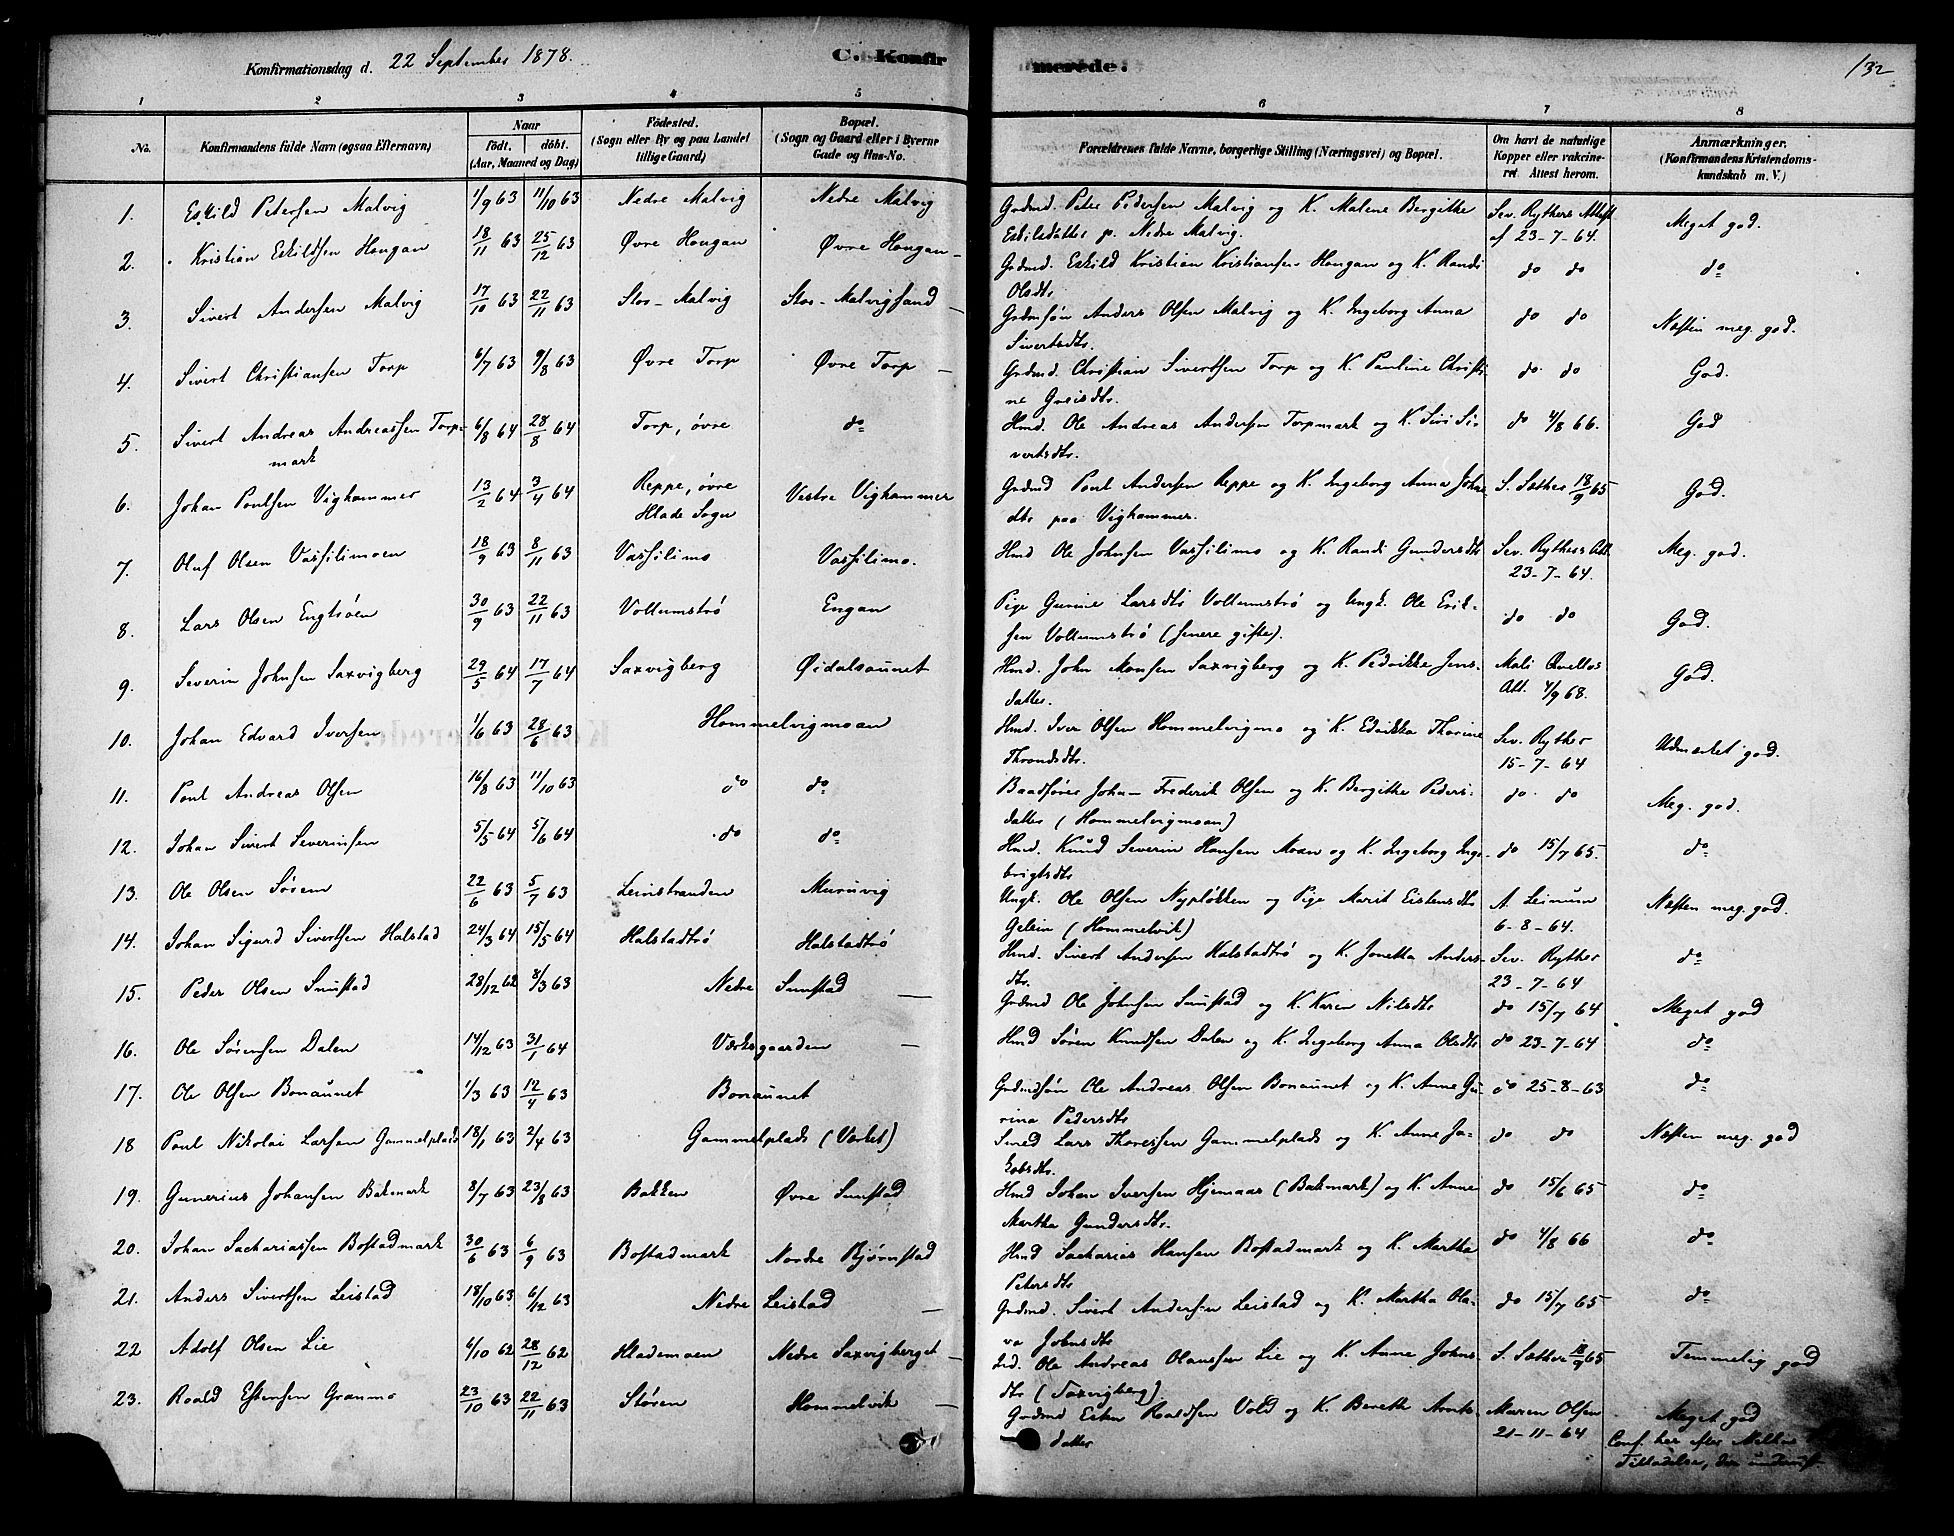 Konfirmationsdag d. 22 September 1878. C. Konfirmerede. 132
1 2 3 4 5 6 7 8
No. Konfirmandens fulde Navn (ogsaa Efternavn) Naar født. døbt. (Aar, Maaned og Dag) Fødested. (Sogn eller By og paa Landet tillige Gaard) Bopæl. (Sogn og Gaard eller i Byerne Gade og Hus-No. Forældrenes fulde Navne, borgerlige Stilling (Næringsvei) og Bopæl. Om havt de naturlige Kopper eller vakcineret. Attest herom. Anmærkninger. (Konfirmandens Kristendomskundskab m. V.)
1. Eskild Petersen Malvig 1/9 63 11/10 63 Nedre Malvig Nedre Malvig Grdmd. Peter Pedersen Malvig og K. Malene Bergitke Sev. Rythers Attest Meget god.
Eskilsdatter p. Nedre Malvig. af 23-7-64.
2. Kristian Eskildsen Hougan 18/11 63 25/12 63 Øvre Hougan Øvre Hougan Grdmd. Eskild Kristian Kristiansen Hougan og K. Randi do do do
Olsdtr.
3. Sivert Andersen Malvig 17/10 63 22/11 63 Stor-Malvig Stor-Malvigsand Grdmsøn Anders Olsen Malvig og K. Ingeborg Anna do do Næsten meg. god.
Sivertsdtr.
4. Sivert Christiansen Torp 6/7 63 9/8 63 Øvre Torp Øvre Torp Grdmd. Christian Sivertsen Torp og K. Pauline Christi- do do God.
ne Greisdtr.
5. Sivert Andreas Andreassen Torp- 6/8 64 28/8 64 Torp, øvre do Hmd. Ole Andreas Andersen Torpmark og K. Siri Si- do 4/8 66. God
mark vertsdtr.
6. Johan Poulsen Vighammer 13/2 64 3/4 64 Reppe, øvre Vestre Vighammer Grdmd Poul Andersen Reppe og K. Ingeborg Anna Johns S. Sæther 18/9 65 God.
Hlade Sogn dtr paa Vighammer.
7. Oluf Olsen Vassilimoen 18/9 63 8/11 63 Vassilimo Vassilimo. Hmd Ole Johnsen Vassilimo og K. Randi Gundersdtr Sev. Rythers Att. Meg. god.
23-7-64.
8. Lars Olsen Engtrøen 30/9 63 22/11 63 Vollumstrø Engan Pige Gurine Larsdtr Vollumstrø og Ungk. Ole Erik- do do God.
sen Vollumstrø (senere gifte).
9. Severin Johnsen Saxvigberg 29/5 64 17/7 64 Saxvigberg Øidalsaunet Hmd. John Monsen Saxvigberg og K. Fredrikke Jens- Mali Qvellos God.
datter. Att. 4/9 68.
10. Johan Edvard Iversen 1/6 63 28/6 63 Hommelvigmoan Hmd. Iver Olsen Hommelvigmo og K. Edrikka Thorine Sev. Ryther Udmærket god.
Throndsdtr. 15-7-64
11. Poul Andreas Olsen 16/8 63 11/10 63 do do Baadfører Johan Frederik Olsen og K. Bergitke Peders- do do Meg. god.
datter (Hommelvigmoan)
12. Johan Sivert Severinsen 5/5 64 5/6 64 do do Hmd. Knud Severin Hansen Moan og K. Ingeborg Inge- do 15/7 65. do
brigtsdtr
13. Ole Olsen Sørem 22/6 63 5/7 63 Leinstranden Muruvig Ungk. Ole Olsen Nypløkken og Pige Marit Eistensdtr A. Leinum Næsten meg. god.
Gelein (Hommelvik) 6-8-64.
14. Johan Sigurd Sivertsen Halstad 24/3 64 15/5 64 Halstadtrø Halstadtrø Hmd. Sivert Andersen Halstadtrø og K. Jonetta Anders- Sev. Ryther do
dtr. 23-7-64
15. Peder Olsen Smistad 28/12 62 8/3 63 Nedre Smistad Grdmd Ole Johnsen Smistad og K. Karen Nilsdtr do 15/7 64 Meget god
16. Ole Sørensen Dalen 14/12 63 31/1 64 Værksgaarden Hmd Søren Knudsen Dalen og K. Ingeborg Anna Olsdtr do 23-7-64 do
17. Ole Olsen Bonaunet 1/3 63 12/4 63 Bonaunet Grdmdsøn Ole Andreas Olsen Bonaunet og K. Anne Gu- do 25-8-63 do
rina Pedersdtr
18 Poul Nikolai Larsen Gammelplads 18/1 63 2/4 63 Gammelplads (Værket) Smed Lars Thoresen Gammelplads og K. Anne Ja- do do Næsten meg. god
kobsdtr.
19. Gunerius Johansen Bakmark 8/7 63 23/8 63 Bakken Øvre Smistad Hmd Johan Iversen Hjemaas (Bakmark) og K. Anne do 15/6 65 do
Martha Gundersdtr.
20. Johan Sachariassen Bostadmark 30/6 63 6/9 63 Bostadmark Nordre Bjørnstad Hmd Sacharias Hansen Bostadmark og K. Martha do 4/8 66 do
Petersdtr
21. Anders Sivertsen Leistad 18/10 63 6/12 63 Nedre Leistad Grdmd. Sivert Andersen Leistad og K. Martha Ola- do 15/7 65 do
va Johnsdtr
22 Adolf Olsen Lie 6/10 62 28/12 62 Hlademoen Nedre Saxvigberget Ole Andreas Olaussen Lie og K. Anne Johns- S. Sæther 18/9 65 Temmelig god
dtr (Saxvigberg).
23. Roald Estensen Granmo 23/10 63 22/11 63 Støren Hommelvik Grdmd Esten Roaldsen Vold og K. Berette Arnts- Maren Olsen Meget god
datter 21-11-64 Conf. her efter
Tilladelse,